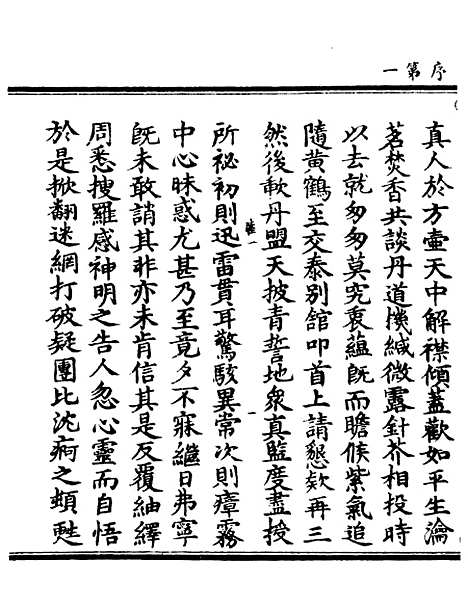 序第一
真人於方壺天中解襟傾蓋歡如平生瀹
茗焚香共談丹道機緘微露針芥相投時
以去就匆匆莫究衷蘊旣而瞻候紫氣追
隨黃鶴至交泰別舘叩首上請懇欵再三
然後軟丹盟天披青誓地衆真監度盡授
所祕初則迅雷貫耳驚駭異常次則瘴霧
中心昧惑尤甚乃至竟夕不寐繼日弗寧
旣未敢誚其非亦未肯信其是反覆紬繹
周悉搜羅感神明之告人忽心靈而自悟
於是掀翻迷網打破疑團比沈痾之頓甦